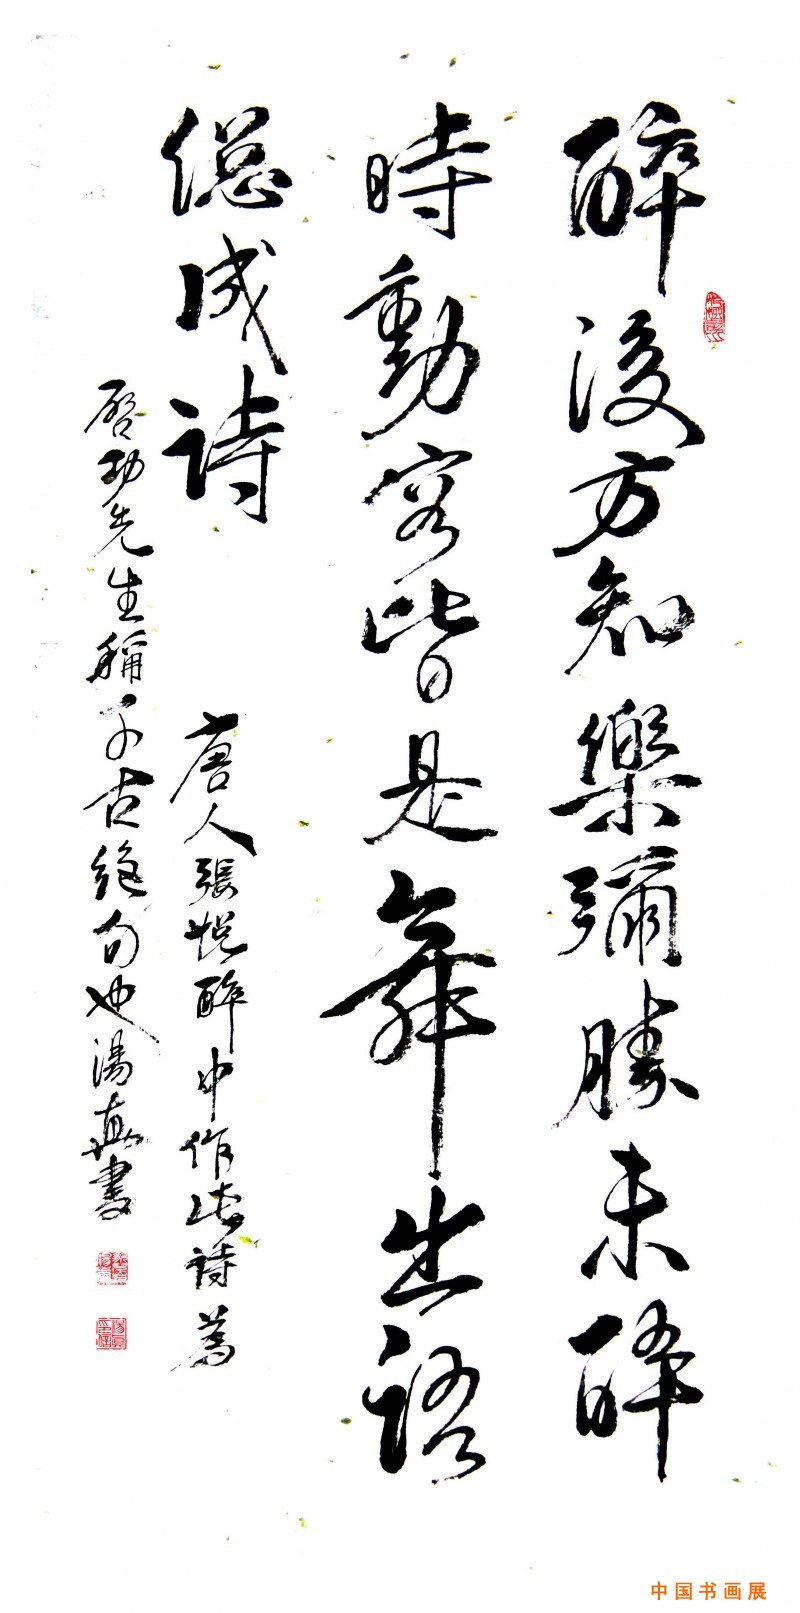 醉後方知樂彌勝未醉
時動容皆是舞出語
總成詩
唐人張悅醉中作此詩為
啓功先生稱千古絕句也湯真書
中国书画展